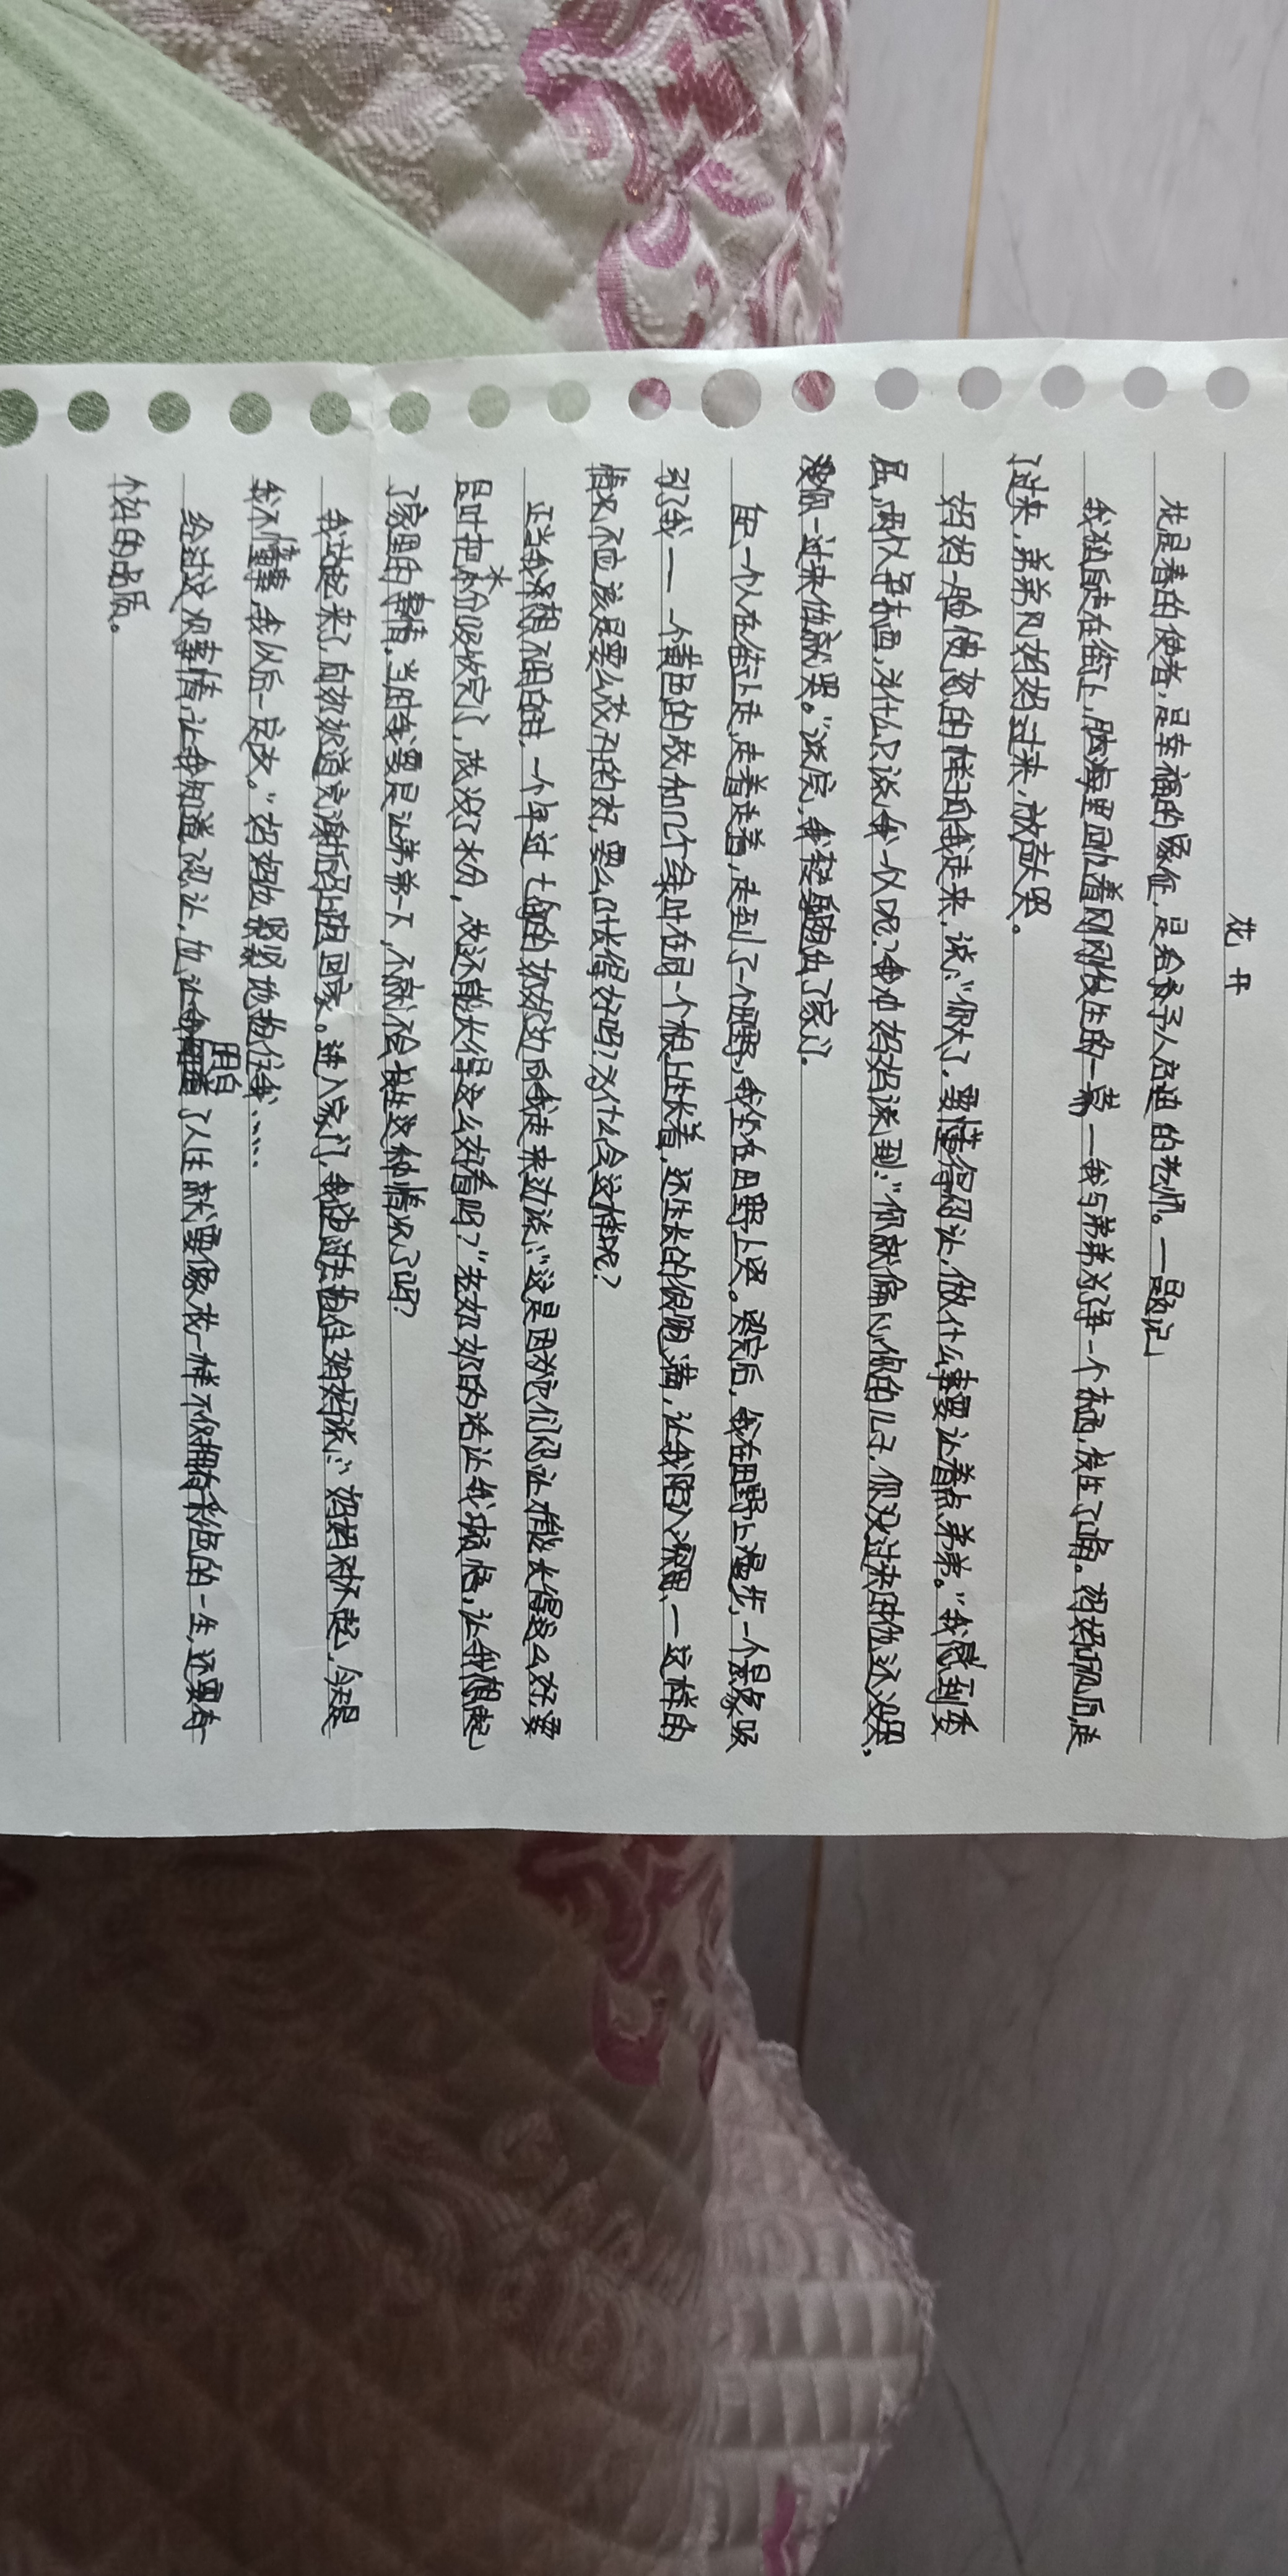 花开
花是春的使者,是幸福的象征,是给予人启迪的老师。—题记
我独自走在街上,脑海里回忆着刚刚发生的一幕——我与弟弟为了争一个东西,发生了口角。妈妈听见后,走
了过来,弟弟见妈妈过来,放声大哭。
妈妈一脸愤怒的样子向我走来,说:“你大了,要懂得忍让,做什么事要让着点弟弟。”我感到委
屈,两个人争东西,为什么只说我一个人呢?我冲妈妈说到:“你就偏心你的儿子,你没过来时他还没哭,
你一过来他就哭。”说完,我转身跑出了家门。
一个人在街上走,走着走着,走到了一个田野,我坐在田野上哭。哭完后,我在田野上漫步,一个景象吸
引了我——一个黄色的花和几个绿叶在同一个根上生长着,还生长的很饱满,让我陷入深思,一这样的
情况不应该是要么花开的好,要么叶长得好吗?为什么会这样呢?
正当我想不明白时,一个年过七旬的奶奶边向我走来边说:“这是因为它们忍让才能长得这么好,要
是叶把水分吸收完了,花没了水份,花还能长得这么好看吗?”老奶奶的话让我顿悟,让我想起
了家里的事情,当时我要是让弟弟一下,不就不会发生这种情况了吗?
我站起来了,向奶奶道完谢后马上跑回家。进入家门,我边过去抱住妈妈说:“妈妈对不起,今天是
我不懂事,我以后一定改。”妈妈也紧紧地抱住我……
经过这次事情,让我知道了忍让,也让我明白了人生就要像花一样不仅拥有彩色的一生,还要有
个好的品质。